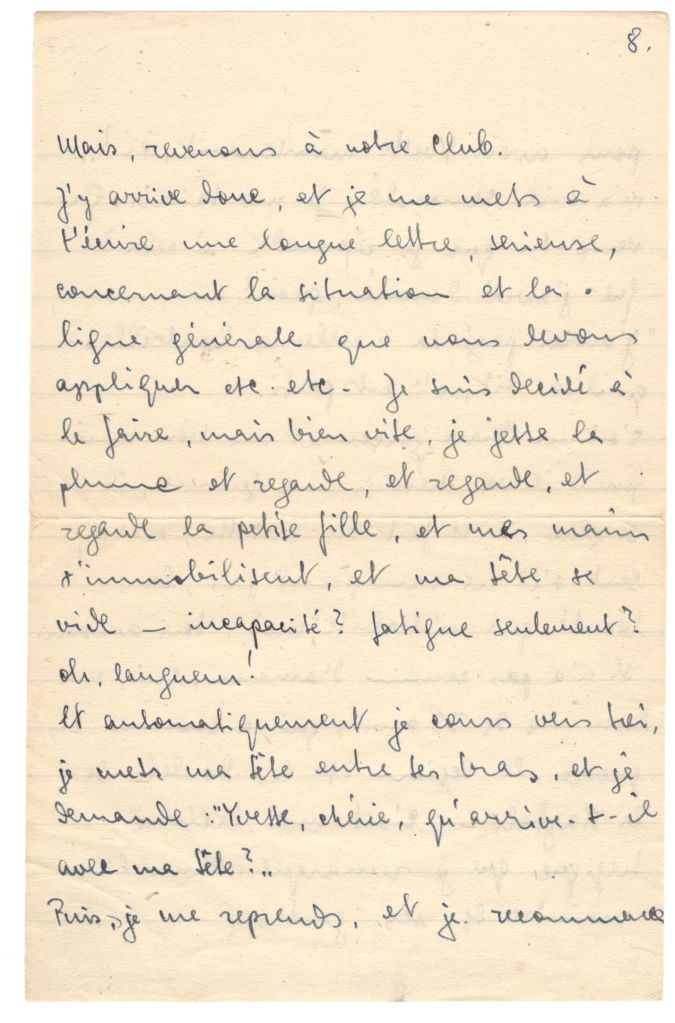 8.
Mais, revenons à notre Club.
J'y arrive donc, et je me mets à
t'écrire une longue lettre, serieuse,
concernant la situation et la
ligne générale que nous devons
appliquer etc. etc. Je suis decidé à
le faire, mais bien vite, je jette la
plume et regarde, et regarde, et
regarde la petite fille, et mes mains
s'immobilisent, et ma tête se
vide — incapacité? fatigue seulement?
oh, langueur!
Et automatiquement je cours vers toi,
je mets ma tête entre tes bras, et je
demande : "Yvette, chérie, qu'arrive-t-il
avec ma tête?"
Puis, je me reprends, et je recommence